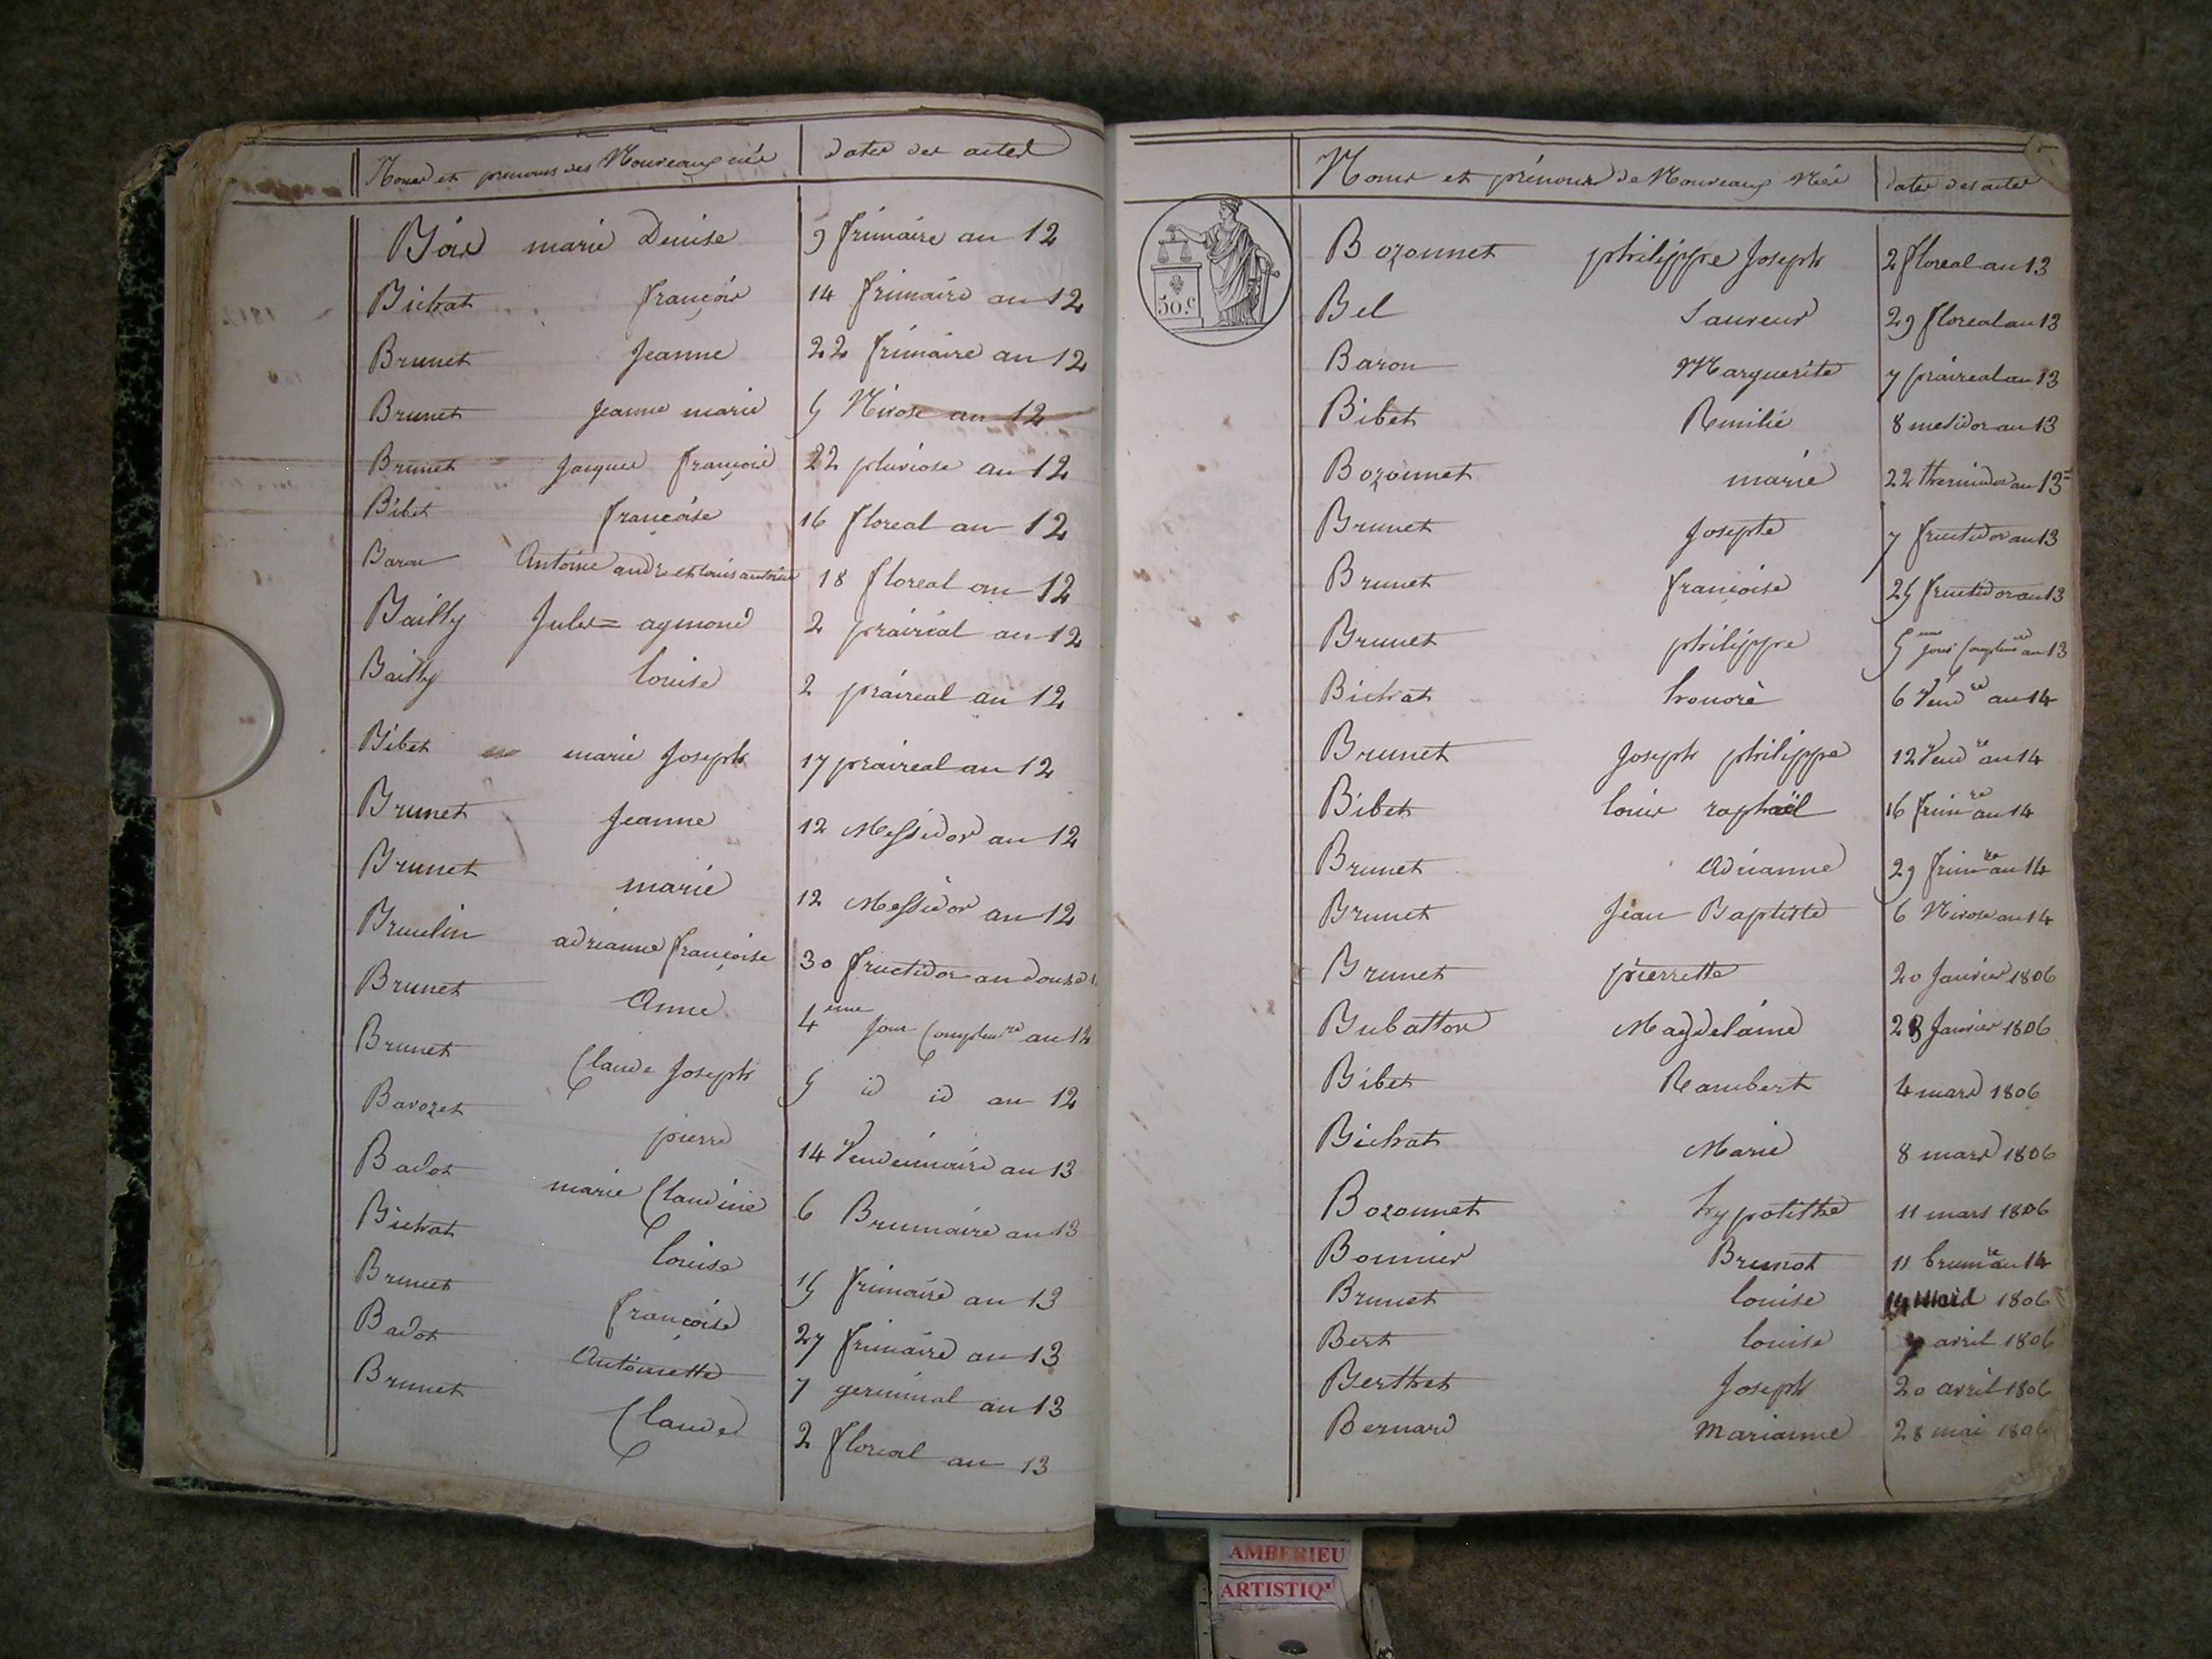 Noms et prenoms des Nouveaux nés dates des actes
Bois marie Denise 9 frimaire an 12
Bichat françois 14 frimaire an 12
Brunet Jeanne 22 frimaire an 12
Brunet Jeanne marie 5 Nivose an 12
Brunet Jacques françois 22 pluviose an 12
Bibet françoise 16 floreal an 12
Baron Antoine andre et louis antoine 18 floreal an 12
Bailly Jules= aymond 2 prairéal an 12
Bailly louise 2 prairéal an 12
Bibet marie Joseph 17 prairéal an 12
Brunet Jeanne 12 Messidor an 12
Brunet marie 12 Messidor an 12
adrianne françoise 30 fructidor an douze
Brunet Anne 4eme Jour Complemre an 12
Brunet Claude Joseph 5 id id an 12
Bavozet pierre 14 Vendémiaire an 13
Badot marie Claudine 6 Brumaire an 13
Bichat louise 15 frimaire an 13
Brunet françoise 27 frimaire an 13
Badot Antoinette 7 germinal an 13
Brunet Claude 2 floreal an 13
Noms et prénoms de Nouveaux Nés dates des actes
50.c
Bozonnet philippe Joseph 2 floreal an 13
Bel Sauveur 29 floreal an 13
Baron Marguerite 7 praireal an 13
Bibet Remilie 8 mesidor an 13
Bozonnet marie 22 thermidor an 13=
Brunet Josepte 7 fructidor an 13
Brunet françoise 25 fructidor an 13
Brunet philippe 5eme jour complemre an 13
Bichat honoré 6 Vendre an 14
Brunet Joseph philippe 12 Vendre an 14
Bibet louis raphaël 16 frimre an 14
Brunet Adrianne 29 frimre an 14
Brunet Jean Baptiste 6 Nivose an 14
Brunet pierrette 20 Janvier 1806
Bubatton Magdelaine 28 Janvier 1806
Bibet Rambert 4 mars 1806
Bichat Marie 8 mars 1806
Bozonnet hypolithe 11 mars 1806
Bonnier Brunot 11 brumre an 14
Brunet louise 14 1806
Bert louise 7 avril 1806
Berthet Joseph 20 avril 1806
Bernard Marianne 28 mai 1806
AMBERIEU
ARTISTIQ